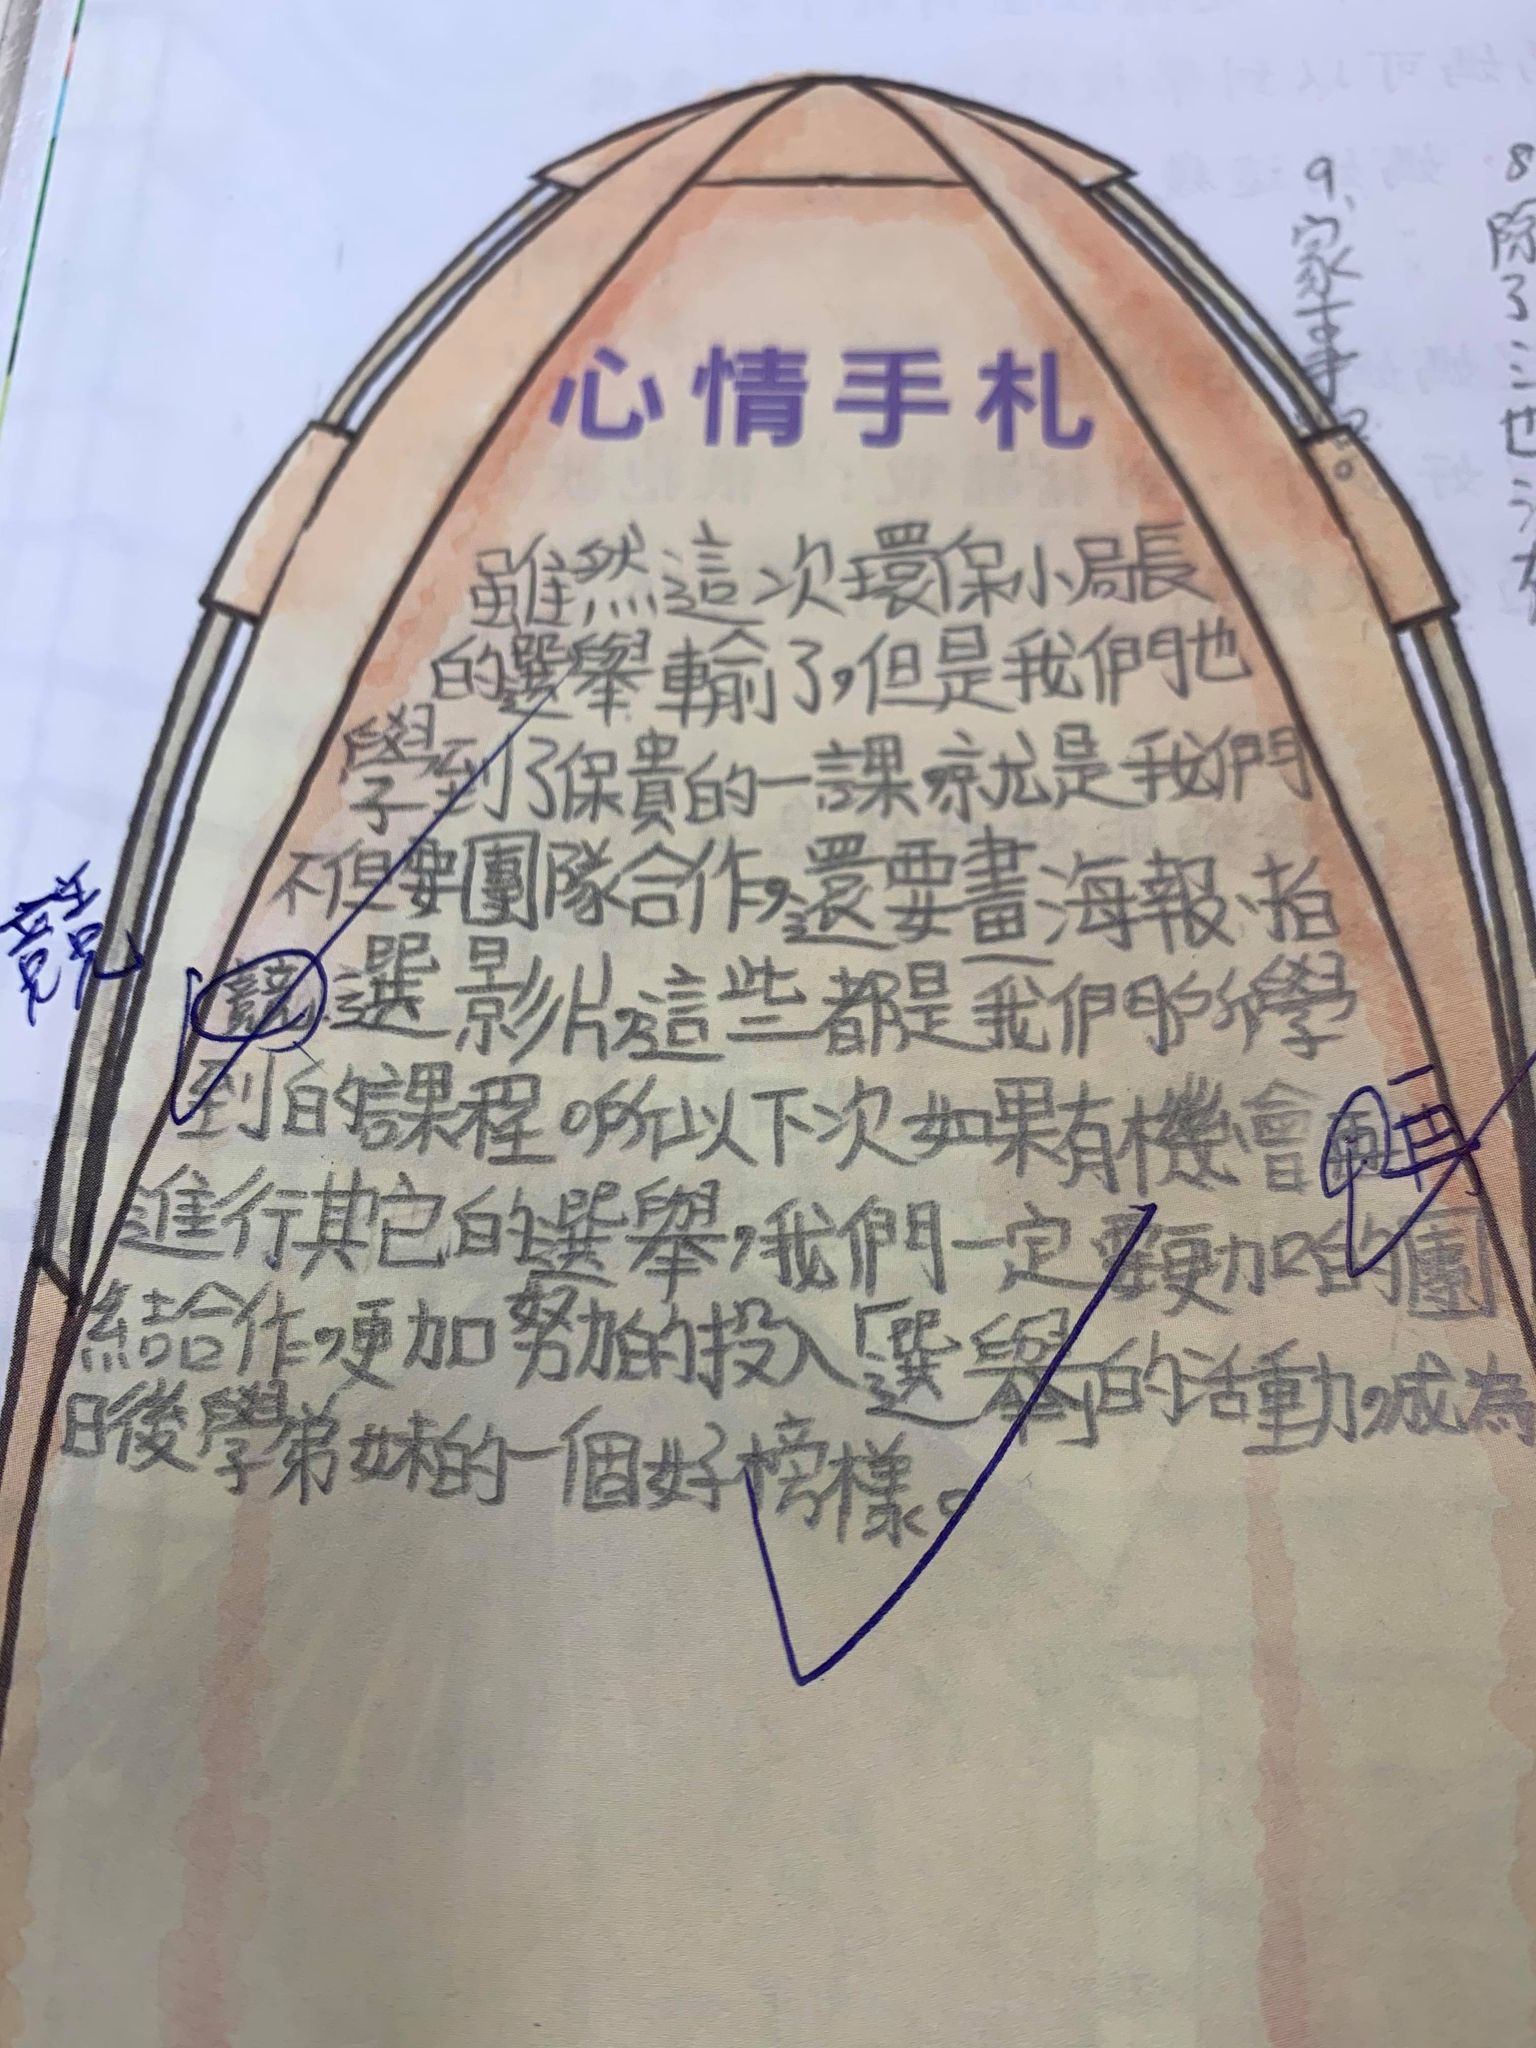 心情手札
雖然這次環保小局長
的選舉輸了,但是我們也
學到了保貴的一課,就是我們
不但要團隊合作,還要畫海報、拍
競選影片,這些都是我們所學
到的課程。所以下次如果有機會再
進行其它的選舉,我們一定要更加的團
結合作,更加努力的投入選舉的活動,成為
日後學弟妹的一個好榜樣。
競
再
9、家事
8除了
也